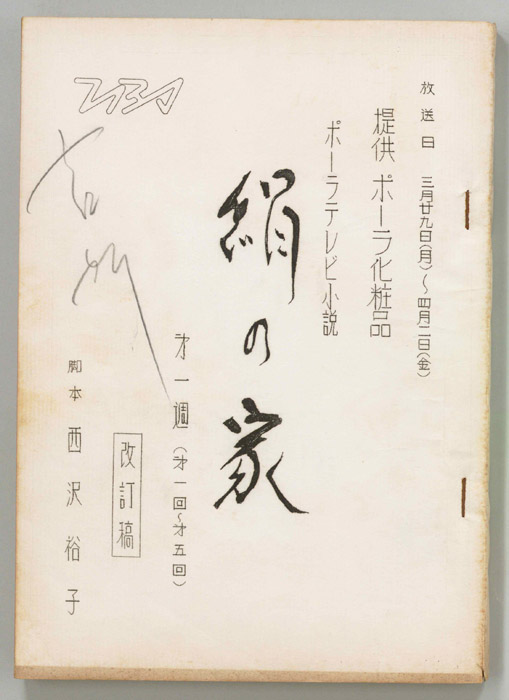 放送日 三月廿九日(月)～四月二日(金)
提供 ポーラ化粧品
ポーラテレビ小説
絹の家
才一週(才一回～才五回)
改訂稿
脚本 西沢裕子
TBS